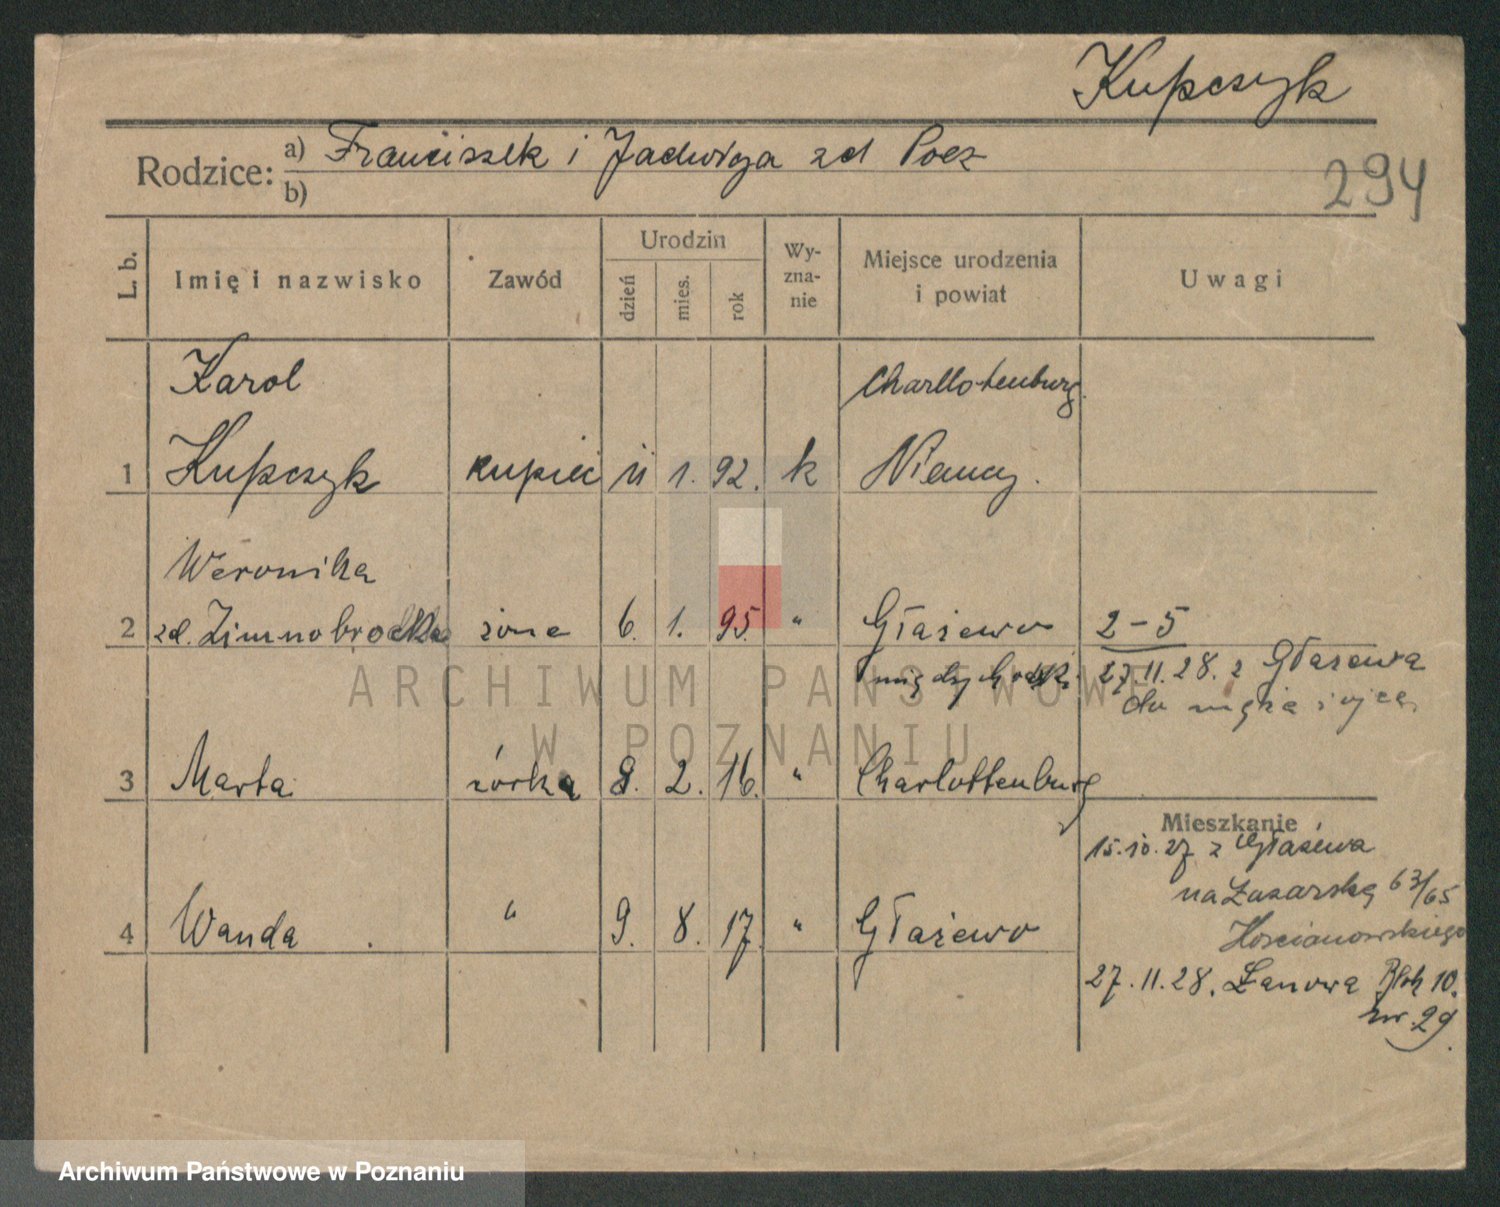 Kupczyk
Rodzice: a) Franciszek i Jadwiga zd Pocz
b)
294
L. b. Imię i nazwisko Zawód Urodzin dzień mies. rok Wy-zna-nie Miejsce urodzenia i powiat Uwagi
Karol Charllotenburg
1 Kupczyk kupiec 11 1. 92. k Niemcy.
Weronika
2 zd. Zimnobrodka żona 6. 1. 95. " Głażewo 2-5
27.11.28. z Głażewa
do męża i ojca
3 Marta córka 8. 2. 16. " Charlottenburg
Mieszkanie
15.10.27 z Głażewa
na Łazarską 63/65
Kościanowskiego
4 Wanda " 9. 8. 17. " Głażewo
27.11.28. Łanowa Blok 10.
nr. 29.
ARCHIWUM PAŃSTWOWE
W POZNANIU
Archiwum Państwowe w Poznaniu